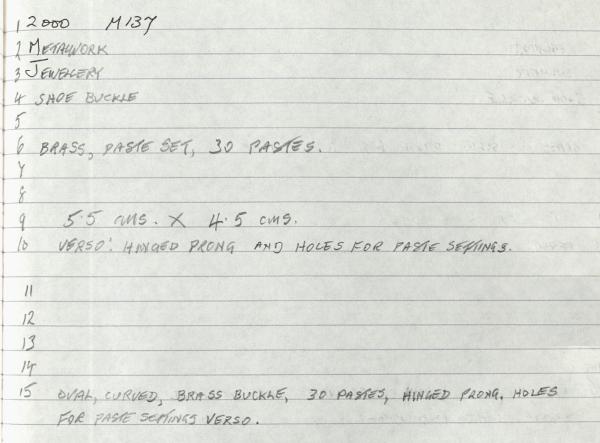 1 2000 M137
2 METALWORK
3 JEWELLERY
4 SHOE BUCKLE
5
6 BRASS, PASTE SET, 30 PASTES.
7
8
9 5.5 CMS. X 4.5 CMS.
10 VERSO: HINGED PRONG AND HOLES FOR PASTE SETTINGS.
11
12
13
14
15 OVAL, CURVED, BRASS BUCKLE, 30 PASTES, HINGED PRONG, HOLES
FOR PASTE SETTINGS VERSO.